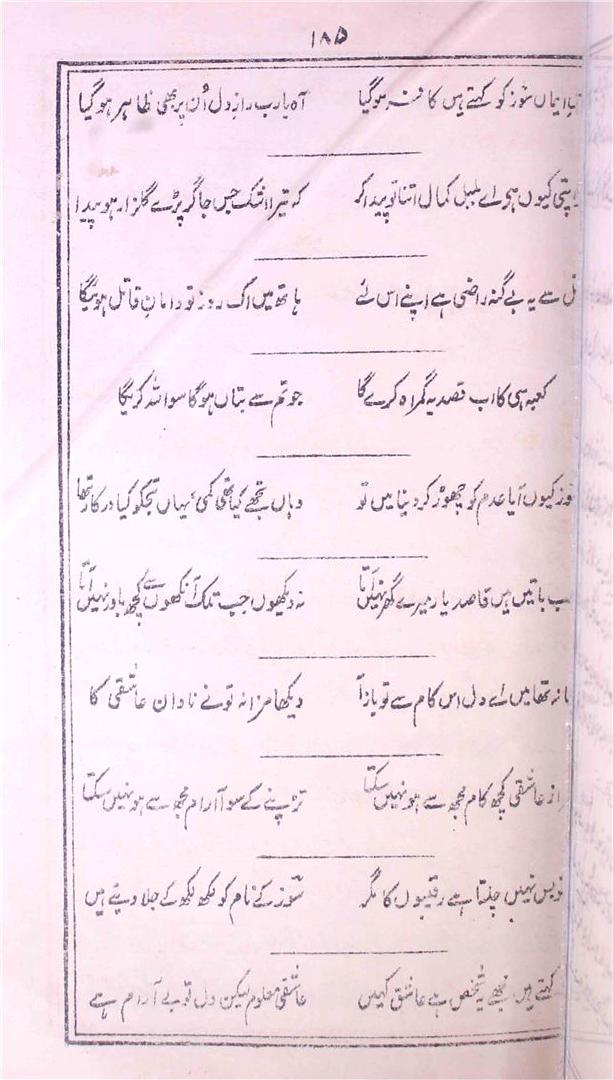 ۱۸۵
ایماں سوز کو کہتے ہیں کافر ہوگیا آہ یارب رازِ دل اُن پر بھی ظاہر ہوگیا
کیوں ہی اے بلبل کمال اتنا تو پیدا کر کہ تیرا اشک جس جا گر پڑے گلزار ہو پیدا
سے یہ بے گنہ راضی ہے اپنے اس لئے ہاتھ میں اک روز تو دامانِ قاتل ہوئیگا
کعبہ ہی کا اب قصد یہ گمراہ کرے گا جو تم سے بتاں ہوگا سو اللہ کریگا
کیوں آیا عدم کو چھوڑ کر دنیا میں تو وہاں تجھے کیا تھی کمی یہاں تجکو کیا درکار تھا
باتیں ہیں قاصد یار میرے گھر نہیں آتا نہ دیکھوں جب تلک آنکھوں سے کچھ باور نہیں آتا
نہ تھا میں اے دل اس کام سے تو باز آ دیکھا مزا نہ تونے نادان عاشقی کا
از عاشقی کچھ کام مجھ سے ہو نہیں سکتا تڑپنے کے سوا آرام مجھ سے ہو نہیں سکتا
بس نہیں چلتا ہے رقیبوں کا مگر سوز کے نام کو لکھ لکھ کے جلا دیتے ہیں
کہتے ہیں مجھے یہ شخص ہے عاشق کہیں عاشقی معلوم لیکن دل تو بے آرام ہے